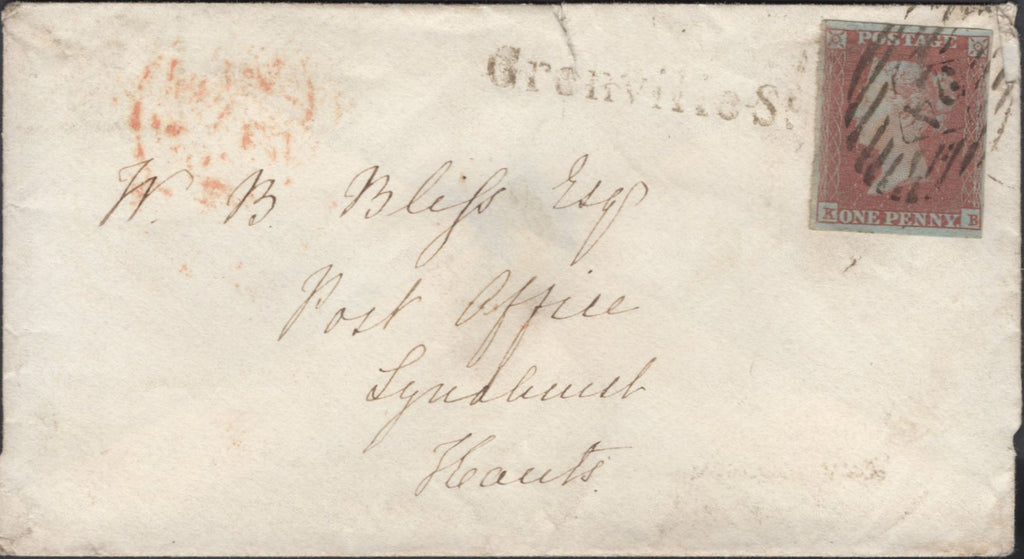 Grenville St
POSTAGE
W. B Bliss Esqr
K ONE PENNY. B
Post Office
Lyndhurst
Hants